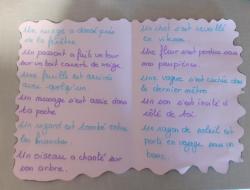 Un nuage a dansé près
de la fenêtre.
Un passant a fait un tour
sur un toit couvert de neige.
Une feuille est arrivée
avec quelqu'un
Un message s'est assis dans
ta poche.
Un regard est tombé entre
les branches.
Un oiseau a chanté sur
son arbre.
Un chat s'est réveillé
en vitesse.
Une fleur s'est perdue sous
mes paupières.
Une vague s'est cachée dans
le dernier métro.
Un son s'est invité à
côté de toi.
Un rayon de soleil est
parti en voyage sous un
banc.